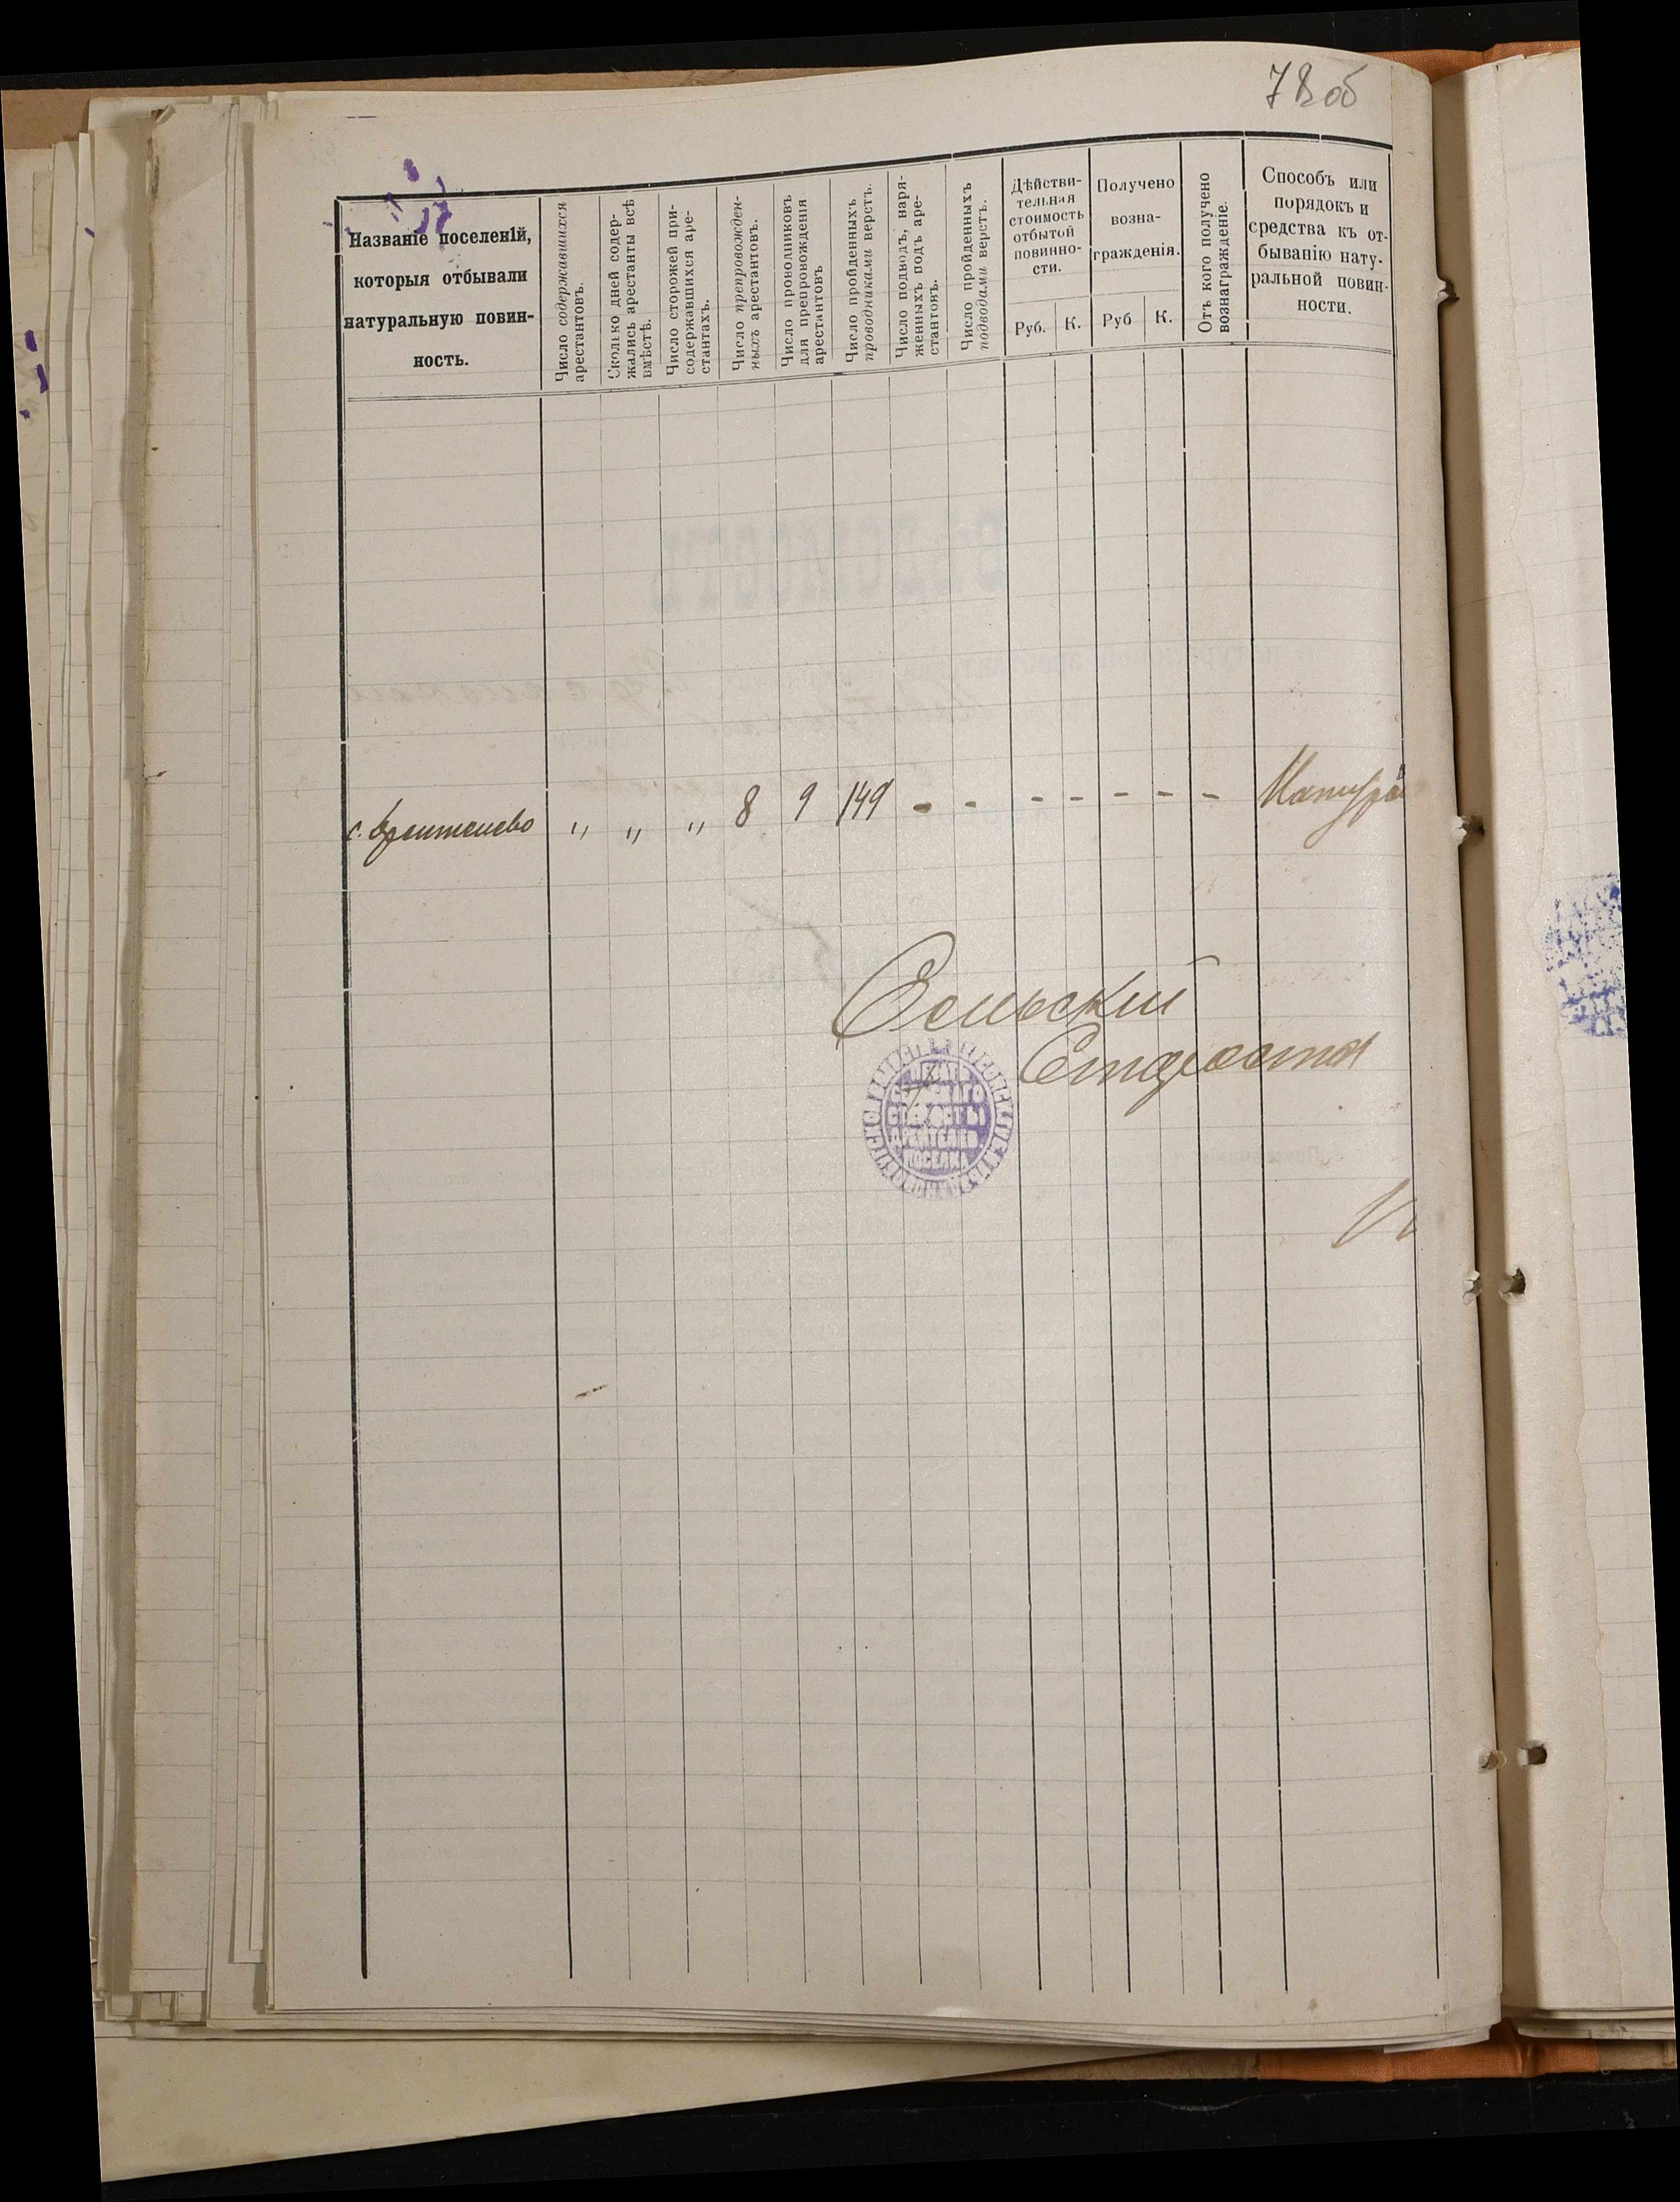 78 об
Названіе поселеній,
которыя отбывали
натуральную повин-
ность.
Число содержавшихся
арестантовъ.
Сколько дней содер-
жались арестанты всѣ
вмѣстѣ.
Число сторожей при-
содержавшихся аре-
стантахъ.
Число препровожден-
ныхъ арестантовъ.
Число проводниковъ
для препровожденія
арестантовъ
Число пройденныхъ
проводниками верстъ.
Число подводъ, наря-
женныхъ подъ аре-
стантовъ.
Число пройденныхъ
подводами верстъ.
Дѣйстви-
тельная
стоимость
отбытой
повинно-
сти.
Руб. К.
Получено
возна-
гражденія.
Руб К.
Отъ кого получено
вознагражденіе.
Способъ или
порядокъ и
средства къ от-
быванію нату-
ральной повин-
ности.
с. " " " 8 9 149 - - - - - - - Натура
Сельскій
Староста
СЕЛЬСКАГО
СТАРОСТЫ
ПОСЕЛКА